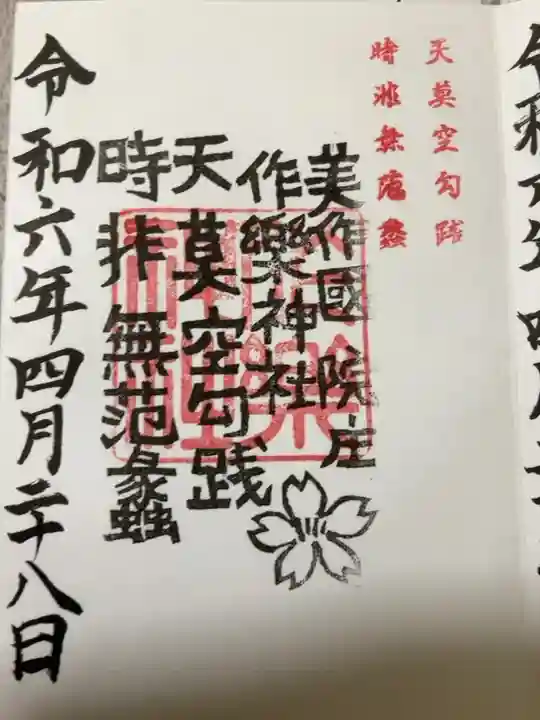 天莫空勾践
時非無范蠡
美作國 院庄
作樂神社
天莫空勾践
時非無范蠡
令和六年四月二十八日